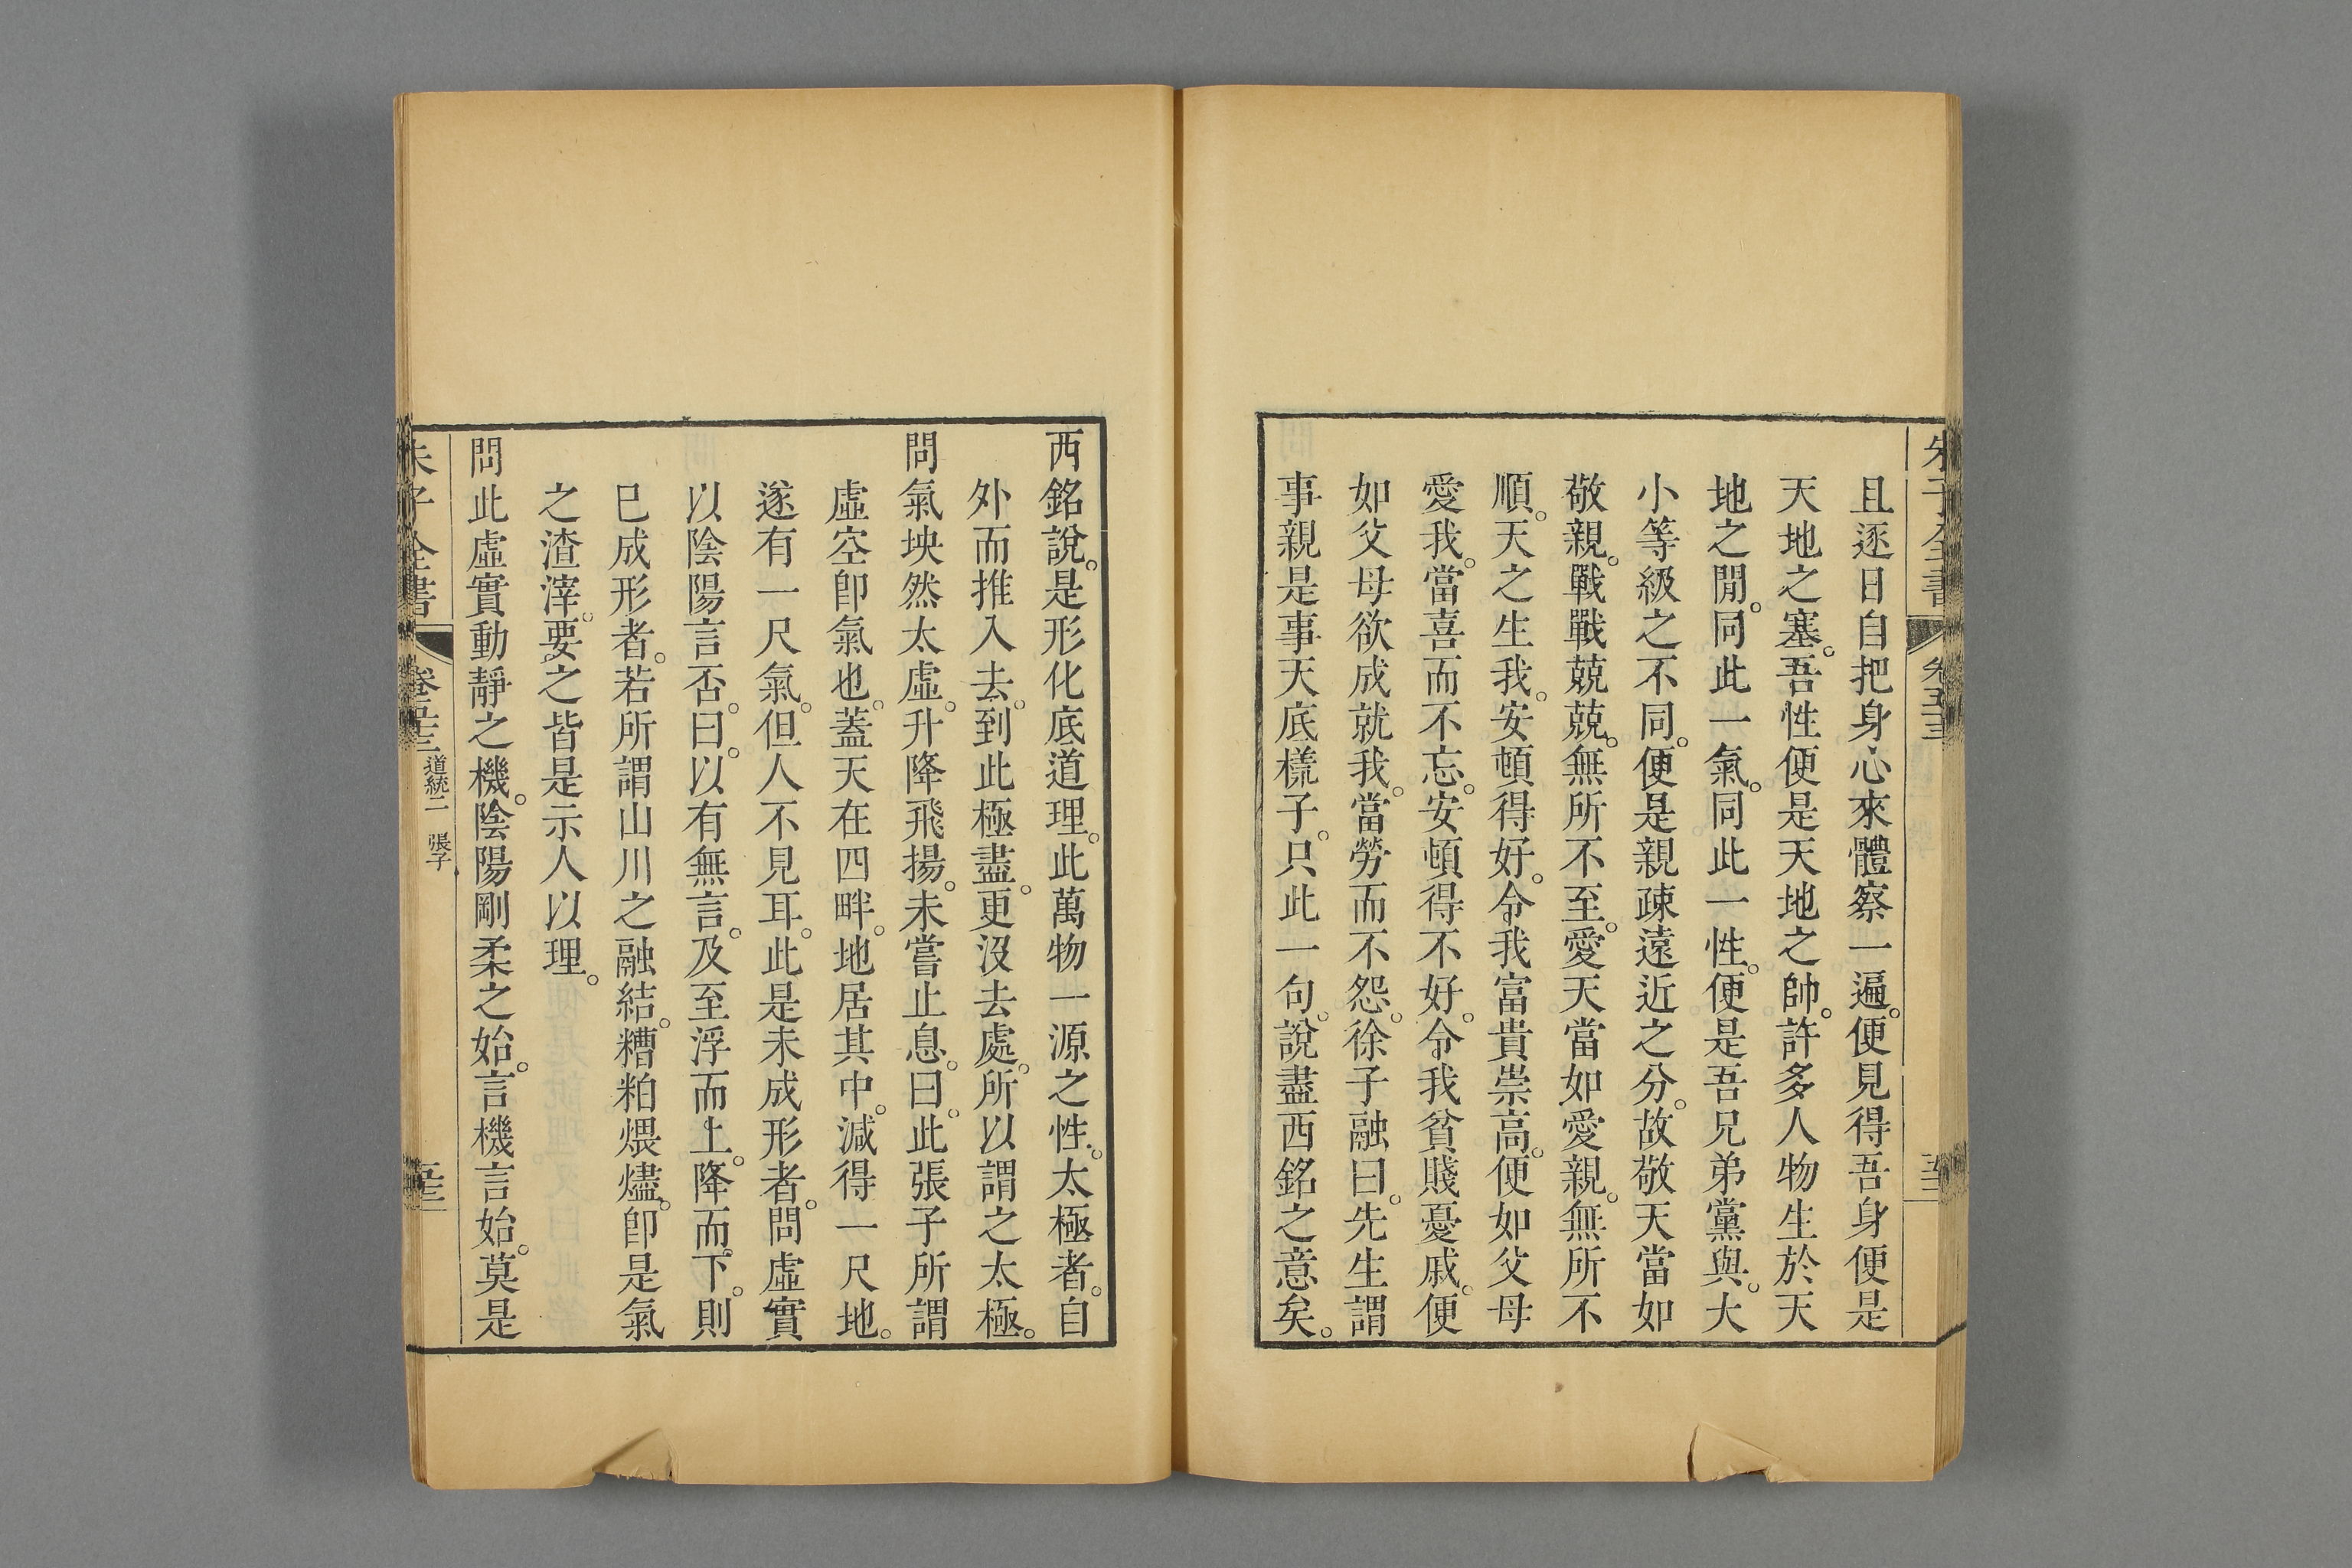 且逐日自把身心來體察一遍。便見得吾身便是
天地之塞。吾性便是天地之帥。許多人物生於天
地之閒。同此一氣。同此一性。便是吾兄弟黨與。大
小等級之不同。便是親疎遠近之分。故敬天當如
敬親。戰戰兢兢。無所不至。愛天當如愛親。無所不
順。天之生我。安頓得好。令我富貴崇高。便如父母
愛我。當喜而不忘。安頓得不好。令我貧賤憂戚。便
如父母欲成就我。當勞而不怨。徐子融曰。先生謂
事親是事天底樣子。只此一句。說盡西銘之意矣。
西銘說。是形化底道理。此萬物一源之性。太極者。自
外而推入去。到此極盡。更沒去處。所以謂之太極。
問氣坱然太虛。升降飛揚。未嘗止息。曰。此張子所謂
虛空卽氣也。蓋天在四畔。地居其中。減得一尺地。
遂有一尺氣。但人不見耳。此是未成形者。問虛實
以陰陽言否。曰。以有無言。及至浮而上。降而下。則
已成形者。若所謂山川之融結。糟粕煨燼。卽是氣
之渣滓。要之皆是示人以理。
問此虛實動靜之機。陰陽剛柔之始。言機言始。莫是
朱子全書
卷五十三
道統二 張子